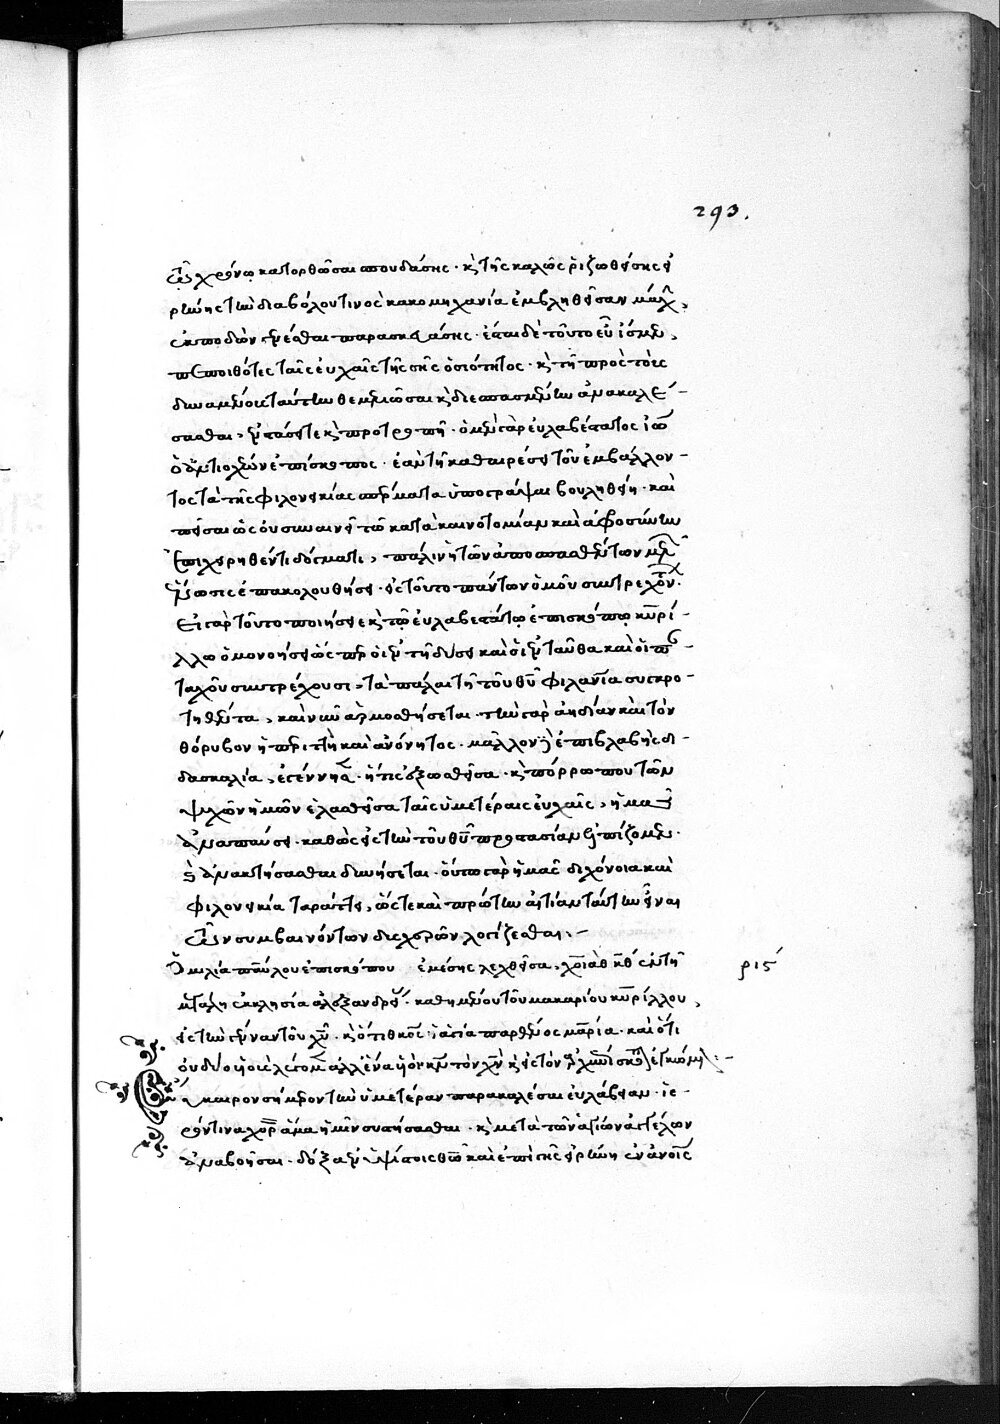 293.
χρόνω κατορθῶσαι σπουδάσης· κ̀ τῆς καλῶς ῥιζωθείσης εἰ
ρήνης τῶ διαβόλου τινὸς κακομηχανία ἐμβληθεῖσαν μάχ
ἐκποδὼν γενέσθαι παρασκευάσης· ἔσται δὲ τοῦτο εὖ ἴσμεν,
πεποιθότες ταῖς εὐχαῖς τῆς σῆς ὁσιότητος· κ̀ τῆ πρὸς τοὺς
δυναμένους ταύτην θεμελιῶσαι κ̀ διεσπασμένην ἀνακαλέ-
σασθαι, ἐντάσει τε κ̀ προτροπῆ· ὁ μὲν γὰρ εὐλαβέστατος ἰω
ὁ ἀντιοχέων ἐπίσκοπος· ἐὰν τῆ καθαιρέσει τοῦ ἐμβάλλον-
τος τὰ τῆς φιλονεικίας σπέρματα ὑπογράψαι βουληθείη· καὶ
πείσαι ὡς οὐ συναινεῖ τῶ κατὰ καινοτομίαν καὶ ἀφοσίωσιν
ἐπιχειρηθέντι δόγματι, πάλιν ἡ τῶν ἀποσπασθέντων μελ
ἕνωσις ἐπακολουθήσει· εἰς τοῦτο πάντων ὁμοῦ συντρεχόν.
Εἰ γὰρ τοῦτο ποιήσειε κ̀ τῶ εὐλαβεστάτω ἐπισκόπω κυρί-
λλω ὁμονοήσει ὥσπερ οἱ ἐν τῆ δύσει καὶ οἱ ἐνταῦθα καὶ οἱ παν-
ταχοῦ συντρέχουσι, τὰ πάλαι τῆ τοῦ θυ φιλανία συγκρο-
τηθέντα, καὶ νῦν ἁρμοσθήσεται· τὴν γὰρ ἀηδίαν καὶ τὸν
θόρυβον ἡ περιττὴ καὶ ἀνόνητος· μᾶλλον δὲ ἐπιβλαβὴς δι-
δασκαλία, ἐγέννησ· ἥτις ἐξωσθεῖσα· κ̀ πόρρω που τῶν
ψυχῶν ἡμῶν ἐλασθεῖσα ταῖς ὑμετέραις εὐχαῖς, ἡμα
ἀναπαύσει· καθὼς εἰς τὴν τοῦ θυ προστασίαν ἐλπίζομεν·
ἀνακτήσασθαι δυνήσεται· οὕτω γὰρ ἡμᾶς διχόνοια καὶ
φιλονεικία ταράττει, ὥστε καὶ πρώτην αἰτίαν ταύτην εἶναι
τῶν συμβαινόντων δυσχερῶν λογίζεσθαι:-
Ὁμιλία παύλου ἐπισκόπου ἐμέσης λεχθεῖσα, χοιὰκ κθ ἐν τῆ ριϛ
μεγάλη ἐκκλησία ἀλεξανδρεί· καθημένου τοῦ μακαρίου κυρίλλου,
εἰς τὴν γένναν τοῦ χυ· κ̀ ὅτι θκος ἡ ἁγία παρθένος μαρία· καὶ ὅτι
οὐ δύο υἱοὺς λέγομεν ἀλλ' ἕνα υἱὸν κν τὸν χν κ̀ εἰς τὸν
καιρὸν σήμερον τὴν ὑμετέραν παρακαλέσαι εὐλάβειαν· ἱε-
ρόν τινα χορ ἅμα ἡμῖν συστήσασθαι· κ̀ μετὰ τῶν ἁγίων ἀγγέλων
ἀναβοῆσαι· δόξα ἐν ὑψίστοις θω καὶ ἐπὶ γῆς εἰρήνη ἐν ἀνοις